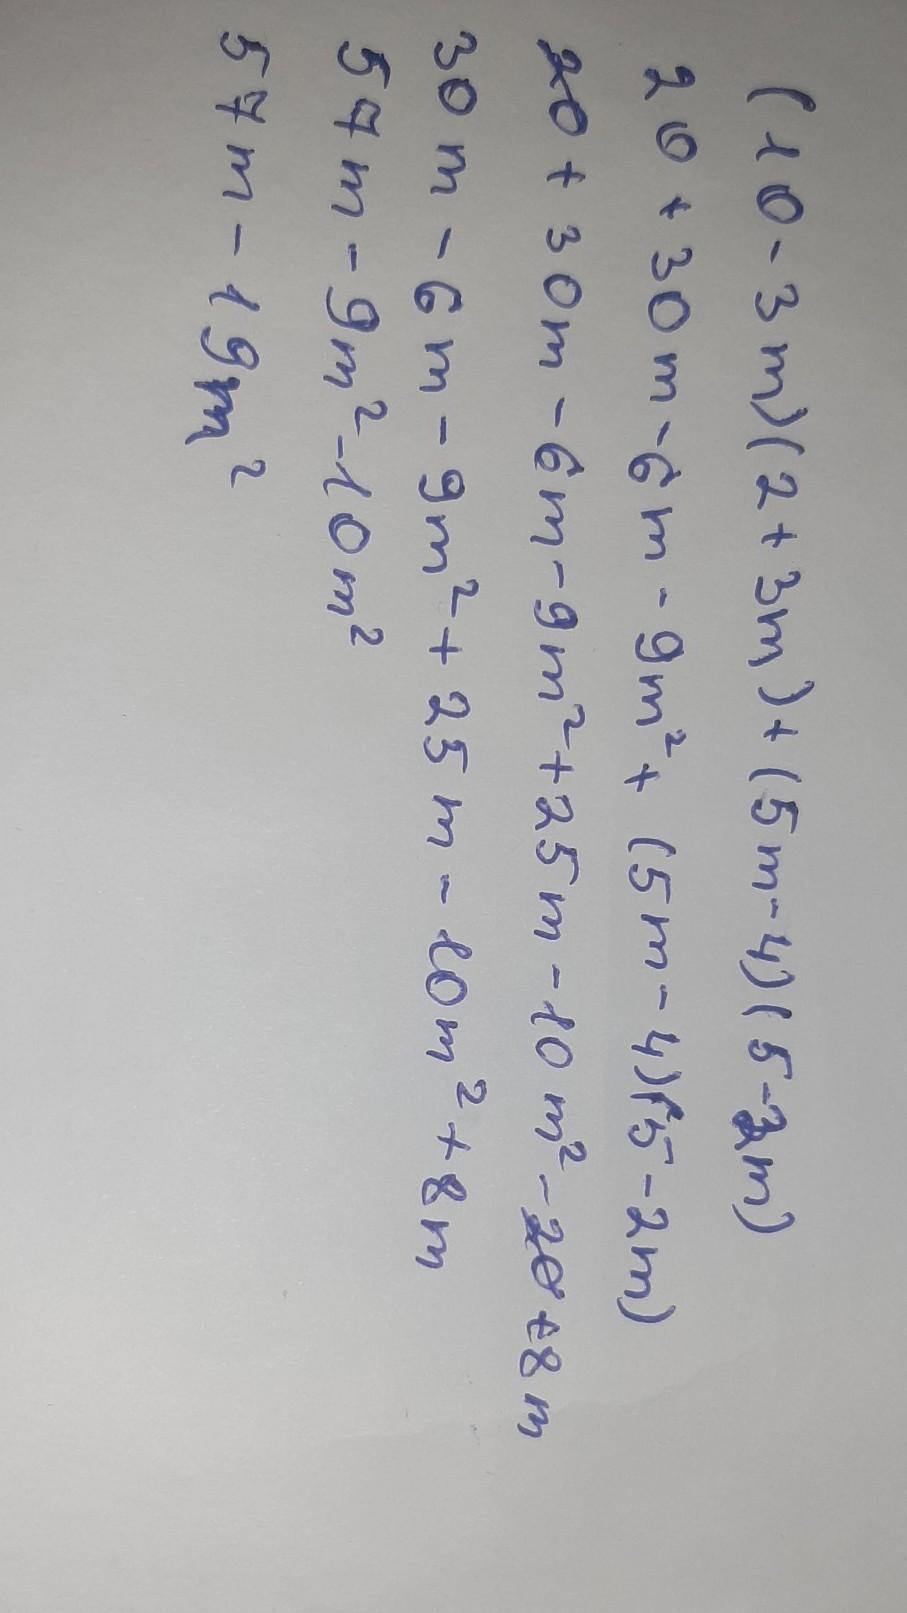 (10-3m)(2+3m)+(5m-4)(5-2m)
20+30m-6m-9m²+(5m-4)(5-2m)
20+30m-6m-9m²+25m-10m²-20+8m
30m-6m-9m²+25m-10m²+8m
57m-9m²-10m²
57m-19m²